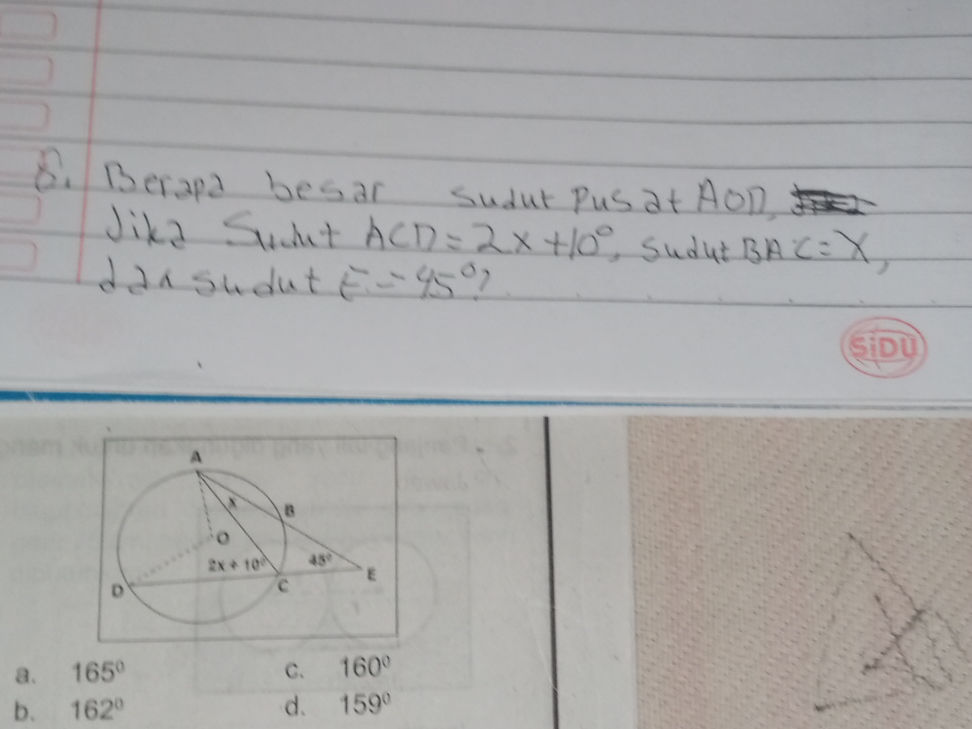 8. Berapa besar sudut pusat AOD,
Jika Sudut ACD = 2x + 10°, sudut BAC = X,
dan sudut E = 45°?
SiDU
A
x
B
O
2x + 10°
45°
E
D
C
a. 165⁰
c. 160⁰
b. 162⁰
d. 159⁰